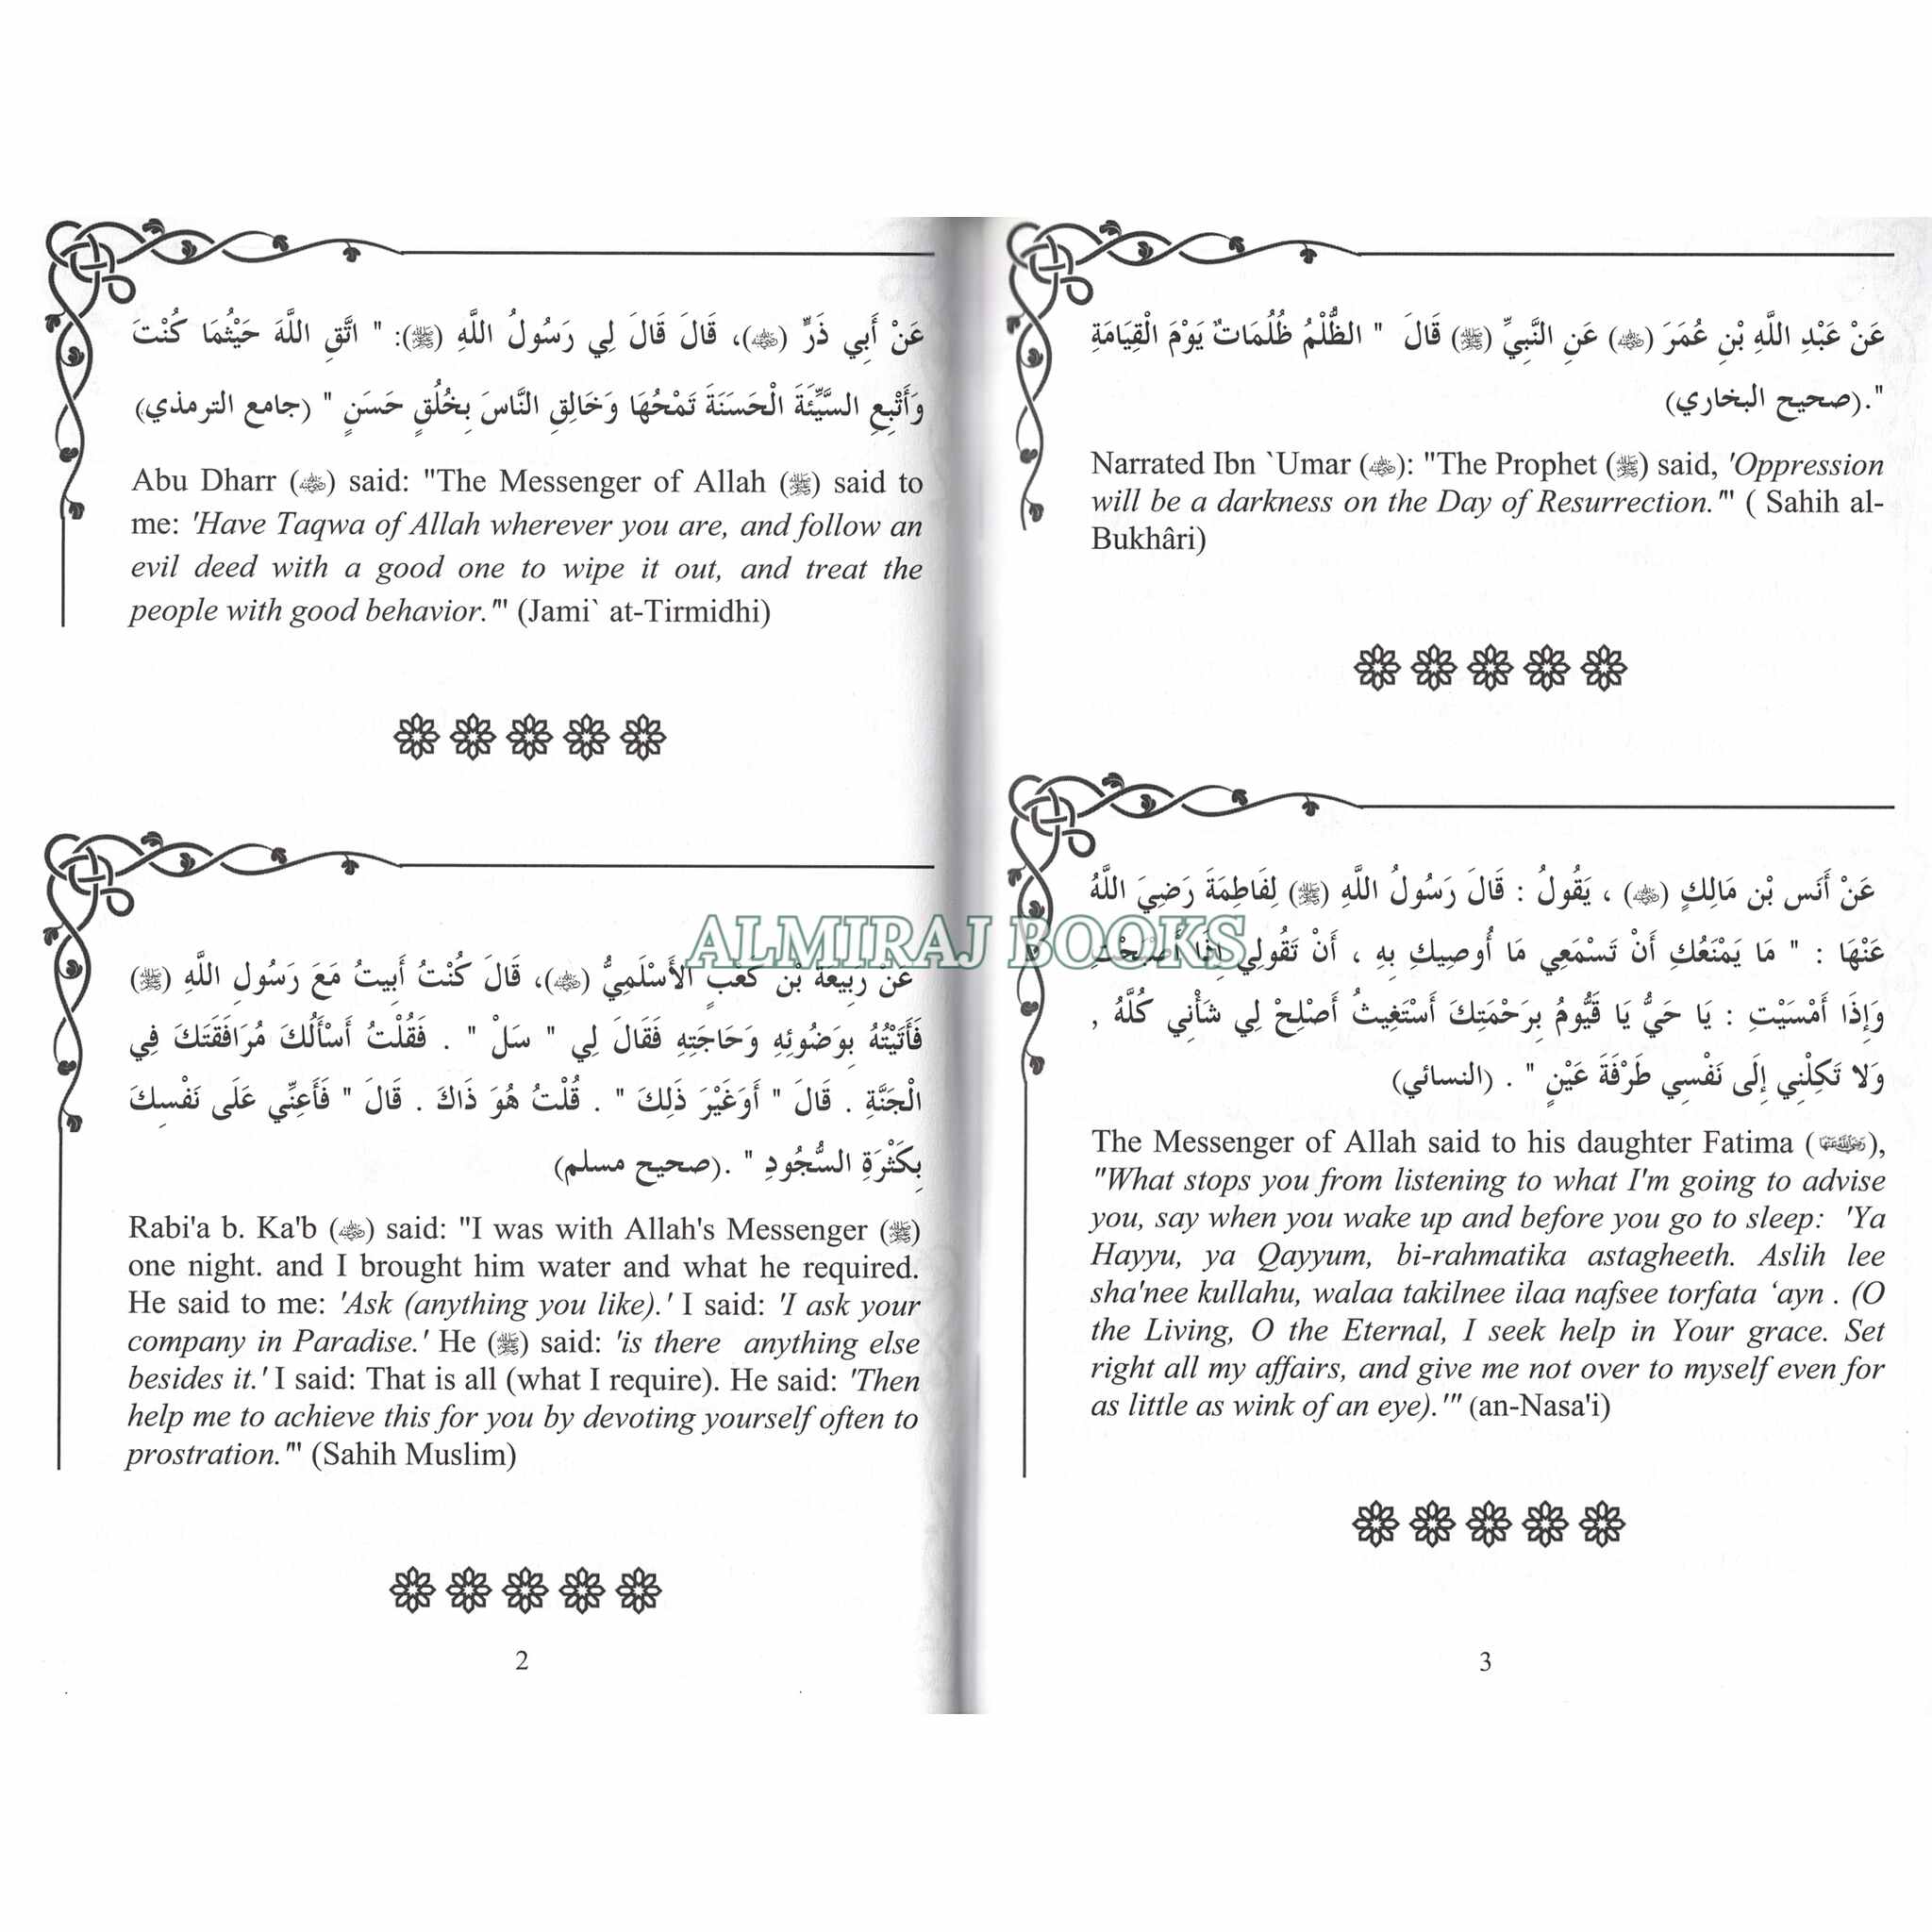 عَنْ أَبِي ذَرٍّ (رضي الله عنه)، قَالَ قَالَ لِي رَسُولُ اللَّهِ (ﷺ): " اتَّقِ اللَّهَ حَيْثُمَا كُنْتَ
وَأَتْبِعِ السَّيِّئَةَ الْحَسَنَةَ تَمْحُهَا وَخَالِقِ النَّاسَ بِخُلُقٍ حَسَنٍ " (جامع الترمذي)
Abu Dharr (رضي الله عنه) said: "The Messenger of Allah (ﷺ) said to
me: 'Have Taqwa of Allah wherever you are, and follow an
evil deed with a good one to wipe it out, and treat the
people with good behavior.'" (Jami` at-Tirmidhi)
عَنْ رَبِيعَةَ بْن كَعْبٍ الأَسْلَمِيُّ (رضي الله عنه)، قَالَ كُنْتُ أَبِيتُ مَعَ رَسُولِ اللَّهِ (ﷺ)
فَأَتَيْتُهُ بِوَضُوئِهِ وَحَاجَتِهِ فَقَالَ لِي " سَلْ " . فَقُلْتُ أَسْأَلُكَ مُرَافَقَتَكَ فِي
الْجَنَّةِ . قَالَ " أَوَغَيْرَ ذَلِكَ " . قُلْتُ هُوَ ذَاكَ . قَالَ " فَأَعِنِّي عَلَى نَفْسِكَ
بِكَثْرَةِ السُّجُودِ " .(صحيح مسلم)
Rabi'a b. Ka'b (رضي الله عنه) said: "I was with Allah's Messenger (ﷺ)
one night. and I brought him water and what he required.
He said to me: 'Ask (anything you like).' I said: 'I ask your
company in Paradise.' He (ﷺ) said: 'is there anything else
besides it.' I said: That is all (what I require). He said: 'Then
help me to achieve this for you by devoting yourself often to
prostration.'" (Sahih Muslim)
2
عَنْ عَبْدِ اللَّهِ بْنِ عُمَرَ (رضي الله عنه) عَنِ النَّبِيِّ (ﷺ) قَالَ " الظُّلْمُ ظُلُمَاتٌ يَوْمَ الْقِيَامَةِ
".(صحيح البخاري)
Narrated Ibn `Umar (رضي الله عنه): "The Prophet (ﷺ) said, 'Oppression
will be a darkness on the Day of Resurrection.'" ( Sahih al-
Bukhâri)
عَنْ أَنَس بْن مَالِكٍ (رضي الله عنه) ، يَقُولُ : قَالَ رَسُولُ اللَّهِ (ﷺ) لِفَاطِمَةَ رَضِيَ اللَّهُ
عَنْهَا : " مَا يَمْنَعُكِ أَنْ تَسْمَعِي مَا أُوصِيكِ بِهِ ، أَنْ تَقُولِي إِذَا أَصْبَحْتِ
وَإِذَا أَمْسَيْتِ : يَا حَيُّ يَا قَيُّومُ بِرَحْمَتِكَ أَسْتَغِيثُ أَصْلِحْ لِي شَأْنِي كُلَّهُ ,
وَلا تَكِلْنِي إِلَى نَفْسِي طَرْفَةَ عَيْنٍ " . (النسائي)
The Messenger of Allah said to his daughter Fatima (رضي الله عنها),
"What stops you from listening to what I'm going to advise
you, say when you wake up and before you go to sleep: 'Ya
Hayyu, ya Qayyum, bi-rahmatika astagheeth. Aslih lee
sha'nee kullahu, walaa takilnee ilaa nafsee torfata ‘ayn . (O
the Living, O the Eternal, I seek help in Your grace. Set
right all my affairs, and give me not over to myself even for
as little as wink of an eye).'" (an-Nasa'i)
3
ALMIRAJ BOOKS